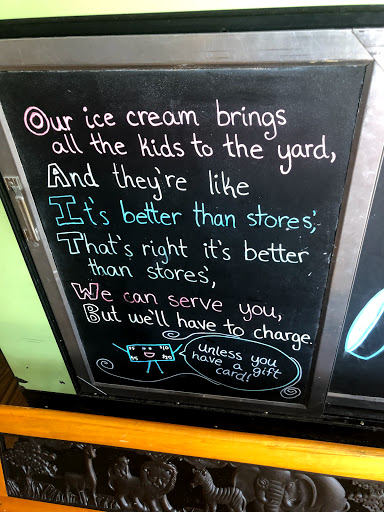 Our ice cream brings
all the kids to the yard,
And they're like
It's better than stores',
That's right it's better
than stores',
We can serve you,
But we'll have to charge.
unless you
have a gift
card!